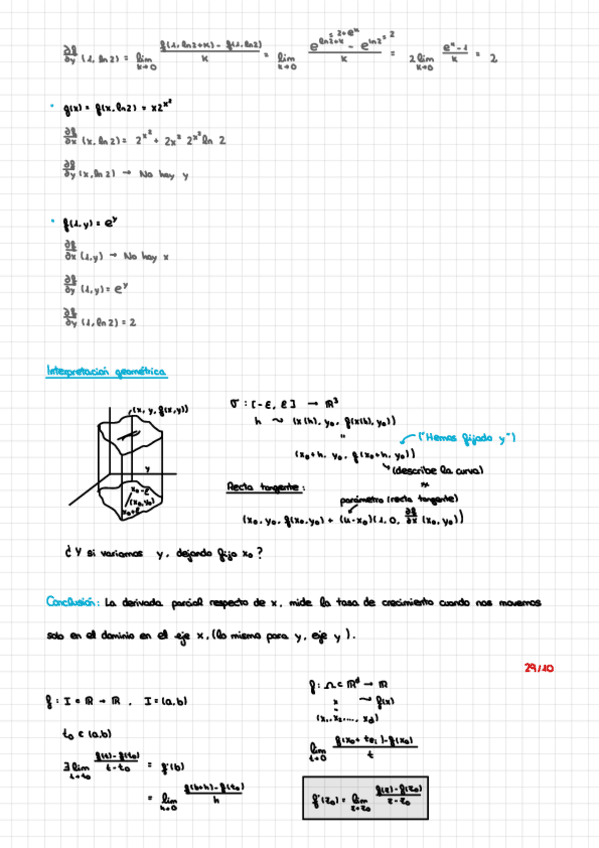 ∂f/∂y (1, ln2) = lim k→0 (f(1, ln2+k) - f(1, ln2))/k = lim k→0 (e^(ln2+k) - e^(ln2))/k = 2 lim k→0 (e^k - 1)/k = 2
= 2·e^k = 2
• g(x) = f(x, ln2) = x2^(x²)
∂f/∂x (x, ln2) = 2^(x²) + 2x² 2^(x²) ln 2
∂f/∂y (x, ln2) → No hay y
• f(1, y) = e^y
∂f/∂x (1, y) → No hay x
∂f/∂y (1, y) = e^y
∂f/∂y (1, ln2) = 2
Interpretación geométrica
(x, y, f(x,y))
y
x₀-ε
(x₀, y₀)
x₀+ε
σ : [-ε, ε] → ℝ³
h ~ (x(h), y₀, f(x(h), y₀))
"
("Hemos fijado y")
(x₀+h, y₀, f(x₀+h, y₀))
(describe la curva)
Recta tangente:
parámetro (recta tangente)
(x₀, y₀, f(x₀, y₀)) + (u-x₀)(1, 0, ∂f/∂x (x₀, y₀))
¿Y si variamos y, dejando fijo x₀?
Conclusión: La derivada parcial respecto de x, mide la tasa de crecimiento cuando nos movemos
solo en el dominio en el eje x, (lo mismo para y, eje y).
29/10
f : I ⊂ ℝ → ℝ , I = (a, b)
f : Ω ⊂ ℝᵈ → ℝ
x ~ f(x)
(x₁, x₂, ..., x_d)
t₀ ∈ (a, b)
∃ lim t→t₀ (f(t) - f(t₀))/(t - t₀) = f'(t₀)
lim t→0 (f(x₀ + te_i) - f(x₀))/t
= lim h→0 (f(t₀+h) - f(t₀))/h
f'(z₀) = lim z→z₀ (f(z) - f(z₀))/(z - z₀)